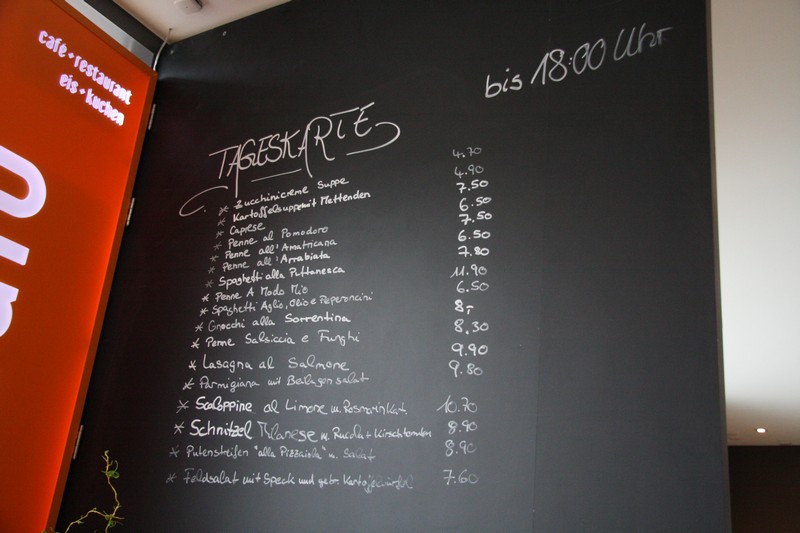 café+restaurant
eis+kuchen
bis 18:00 Uhr
TAGESKARTE
* Zucchinicreme Suppe 4.70
* Kartoffelsuppe mit Mettenden 4.90
* Caprese 7.50
* Penne al Pomodoro 6.50
* Penne all'Amatricana 7.50
* Penne all'Arrabiata 6.50
* Spaghetti alla Puttanesca 7.80
* Penne A Modo Mio 11.90
* Spaghetti Aglio, Olio e Peperoncini 6.50
* Gnocchi alla Sorrentina 8,-
* Penne Salsiccia e Funghi 8.30
* Lasagna al Salmone 9.90
* Parmigiana mit Beilagensalat 9.80
* Scaloppine al Limone m. Rosmarinkart. 10.70
* Schnitzel Milanese m. Rucola + Kirschtomaten 8.90
* Putenstreifen "alla Pizzaiola" m. Salat 8.90
* Feldsalat mit Speck und gebr. Kartoffelwürfel 7.60